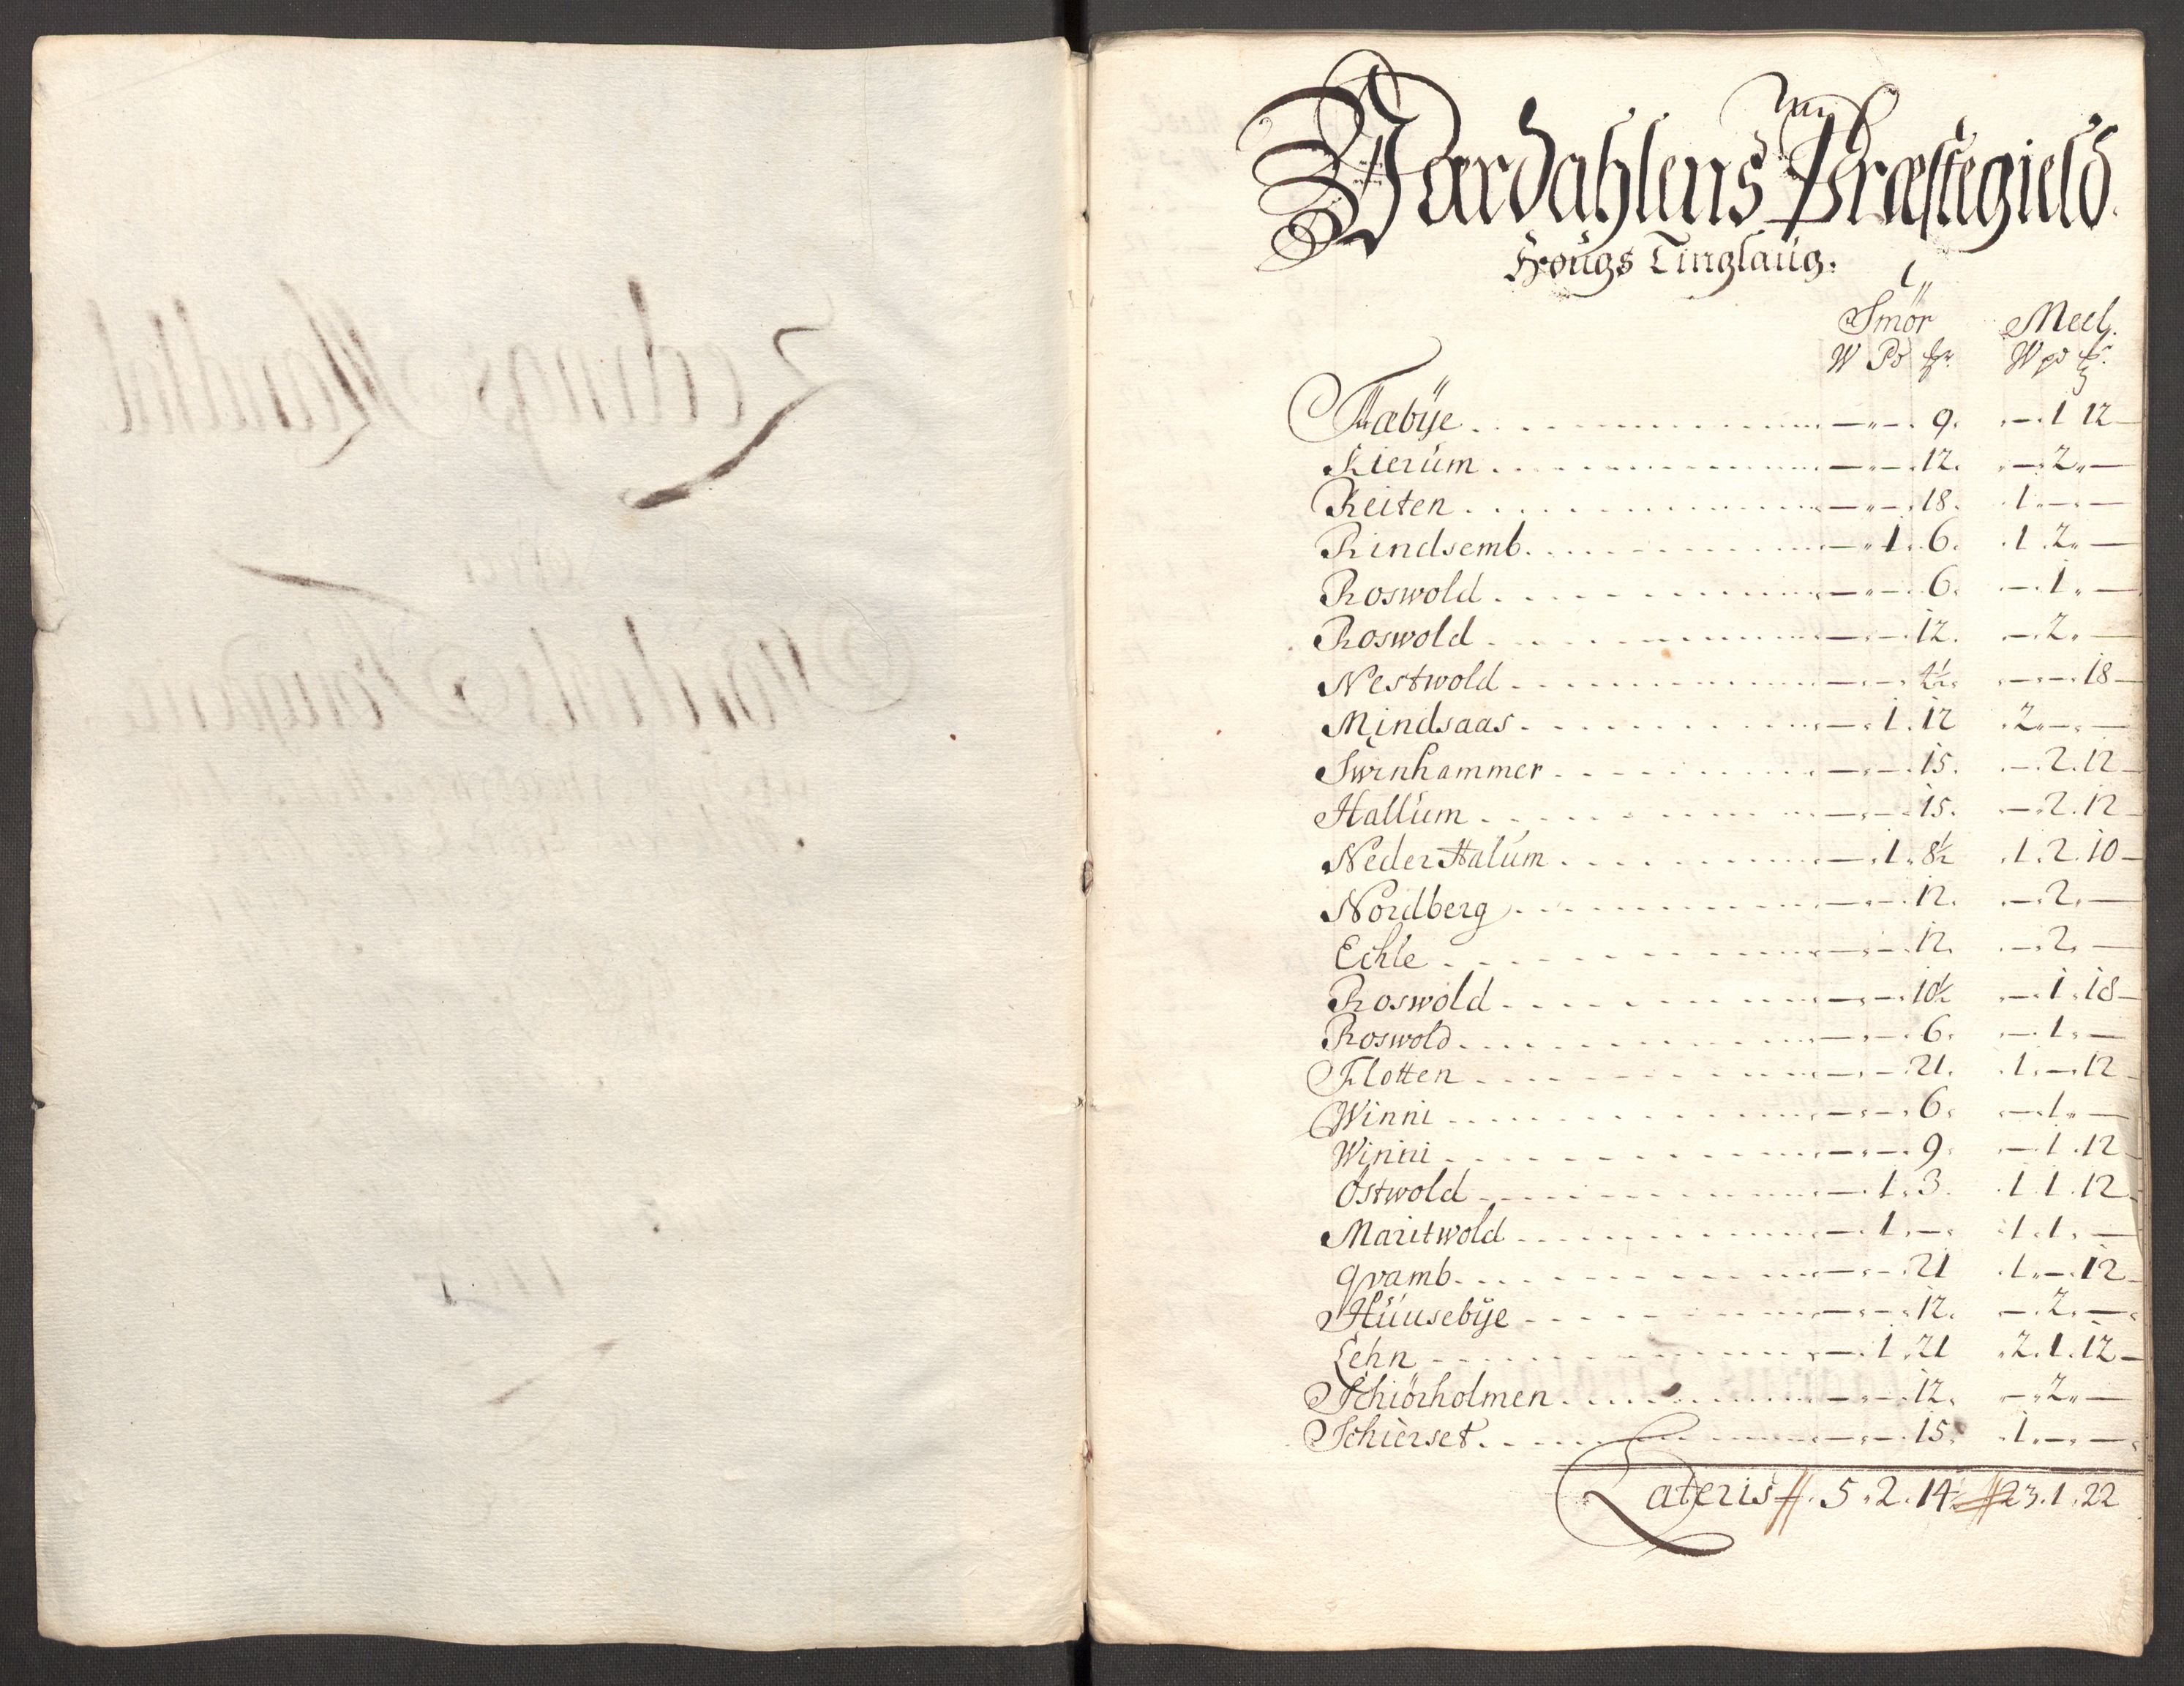 Wærdahlens Præstegield.
Hougs Tinglaug.
Smör Meel.
W Pd W pd
Fæbÿe 9. 1 12
Kierum 12. 2
Reiten 18. 1
Rindsemb 1. 6. 1 2
Roswold 6. 1
Roswold 12. 2
Nestwold 4½ 18
Mindsaas 1. 12 2
Swinhammer 15. 2. 12
Hallum 15. 2. 12
Neder Halum 1. 8½ 1. 2. 10
Nordberg 12. 2
Echle 12. 2
Roswold 10½ 1. 18
Roswold 6. 1
Flotten 21. 1. 12
Winni 6. 1
Winni 9. 1. 12
Östwold 1. 3. 1 1. 12
Maritwold 1. 1. 1
Qvamb 21 1. 12
Huusebÿe 12. 2
Lehn 1. 21 2. 1. 12
Schiörholmen 12. 2
Schierset 15. 1
Lateris 5. 2. 14½ 23. 1. 22